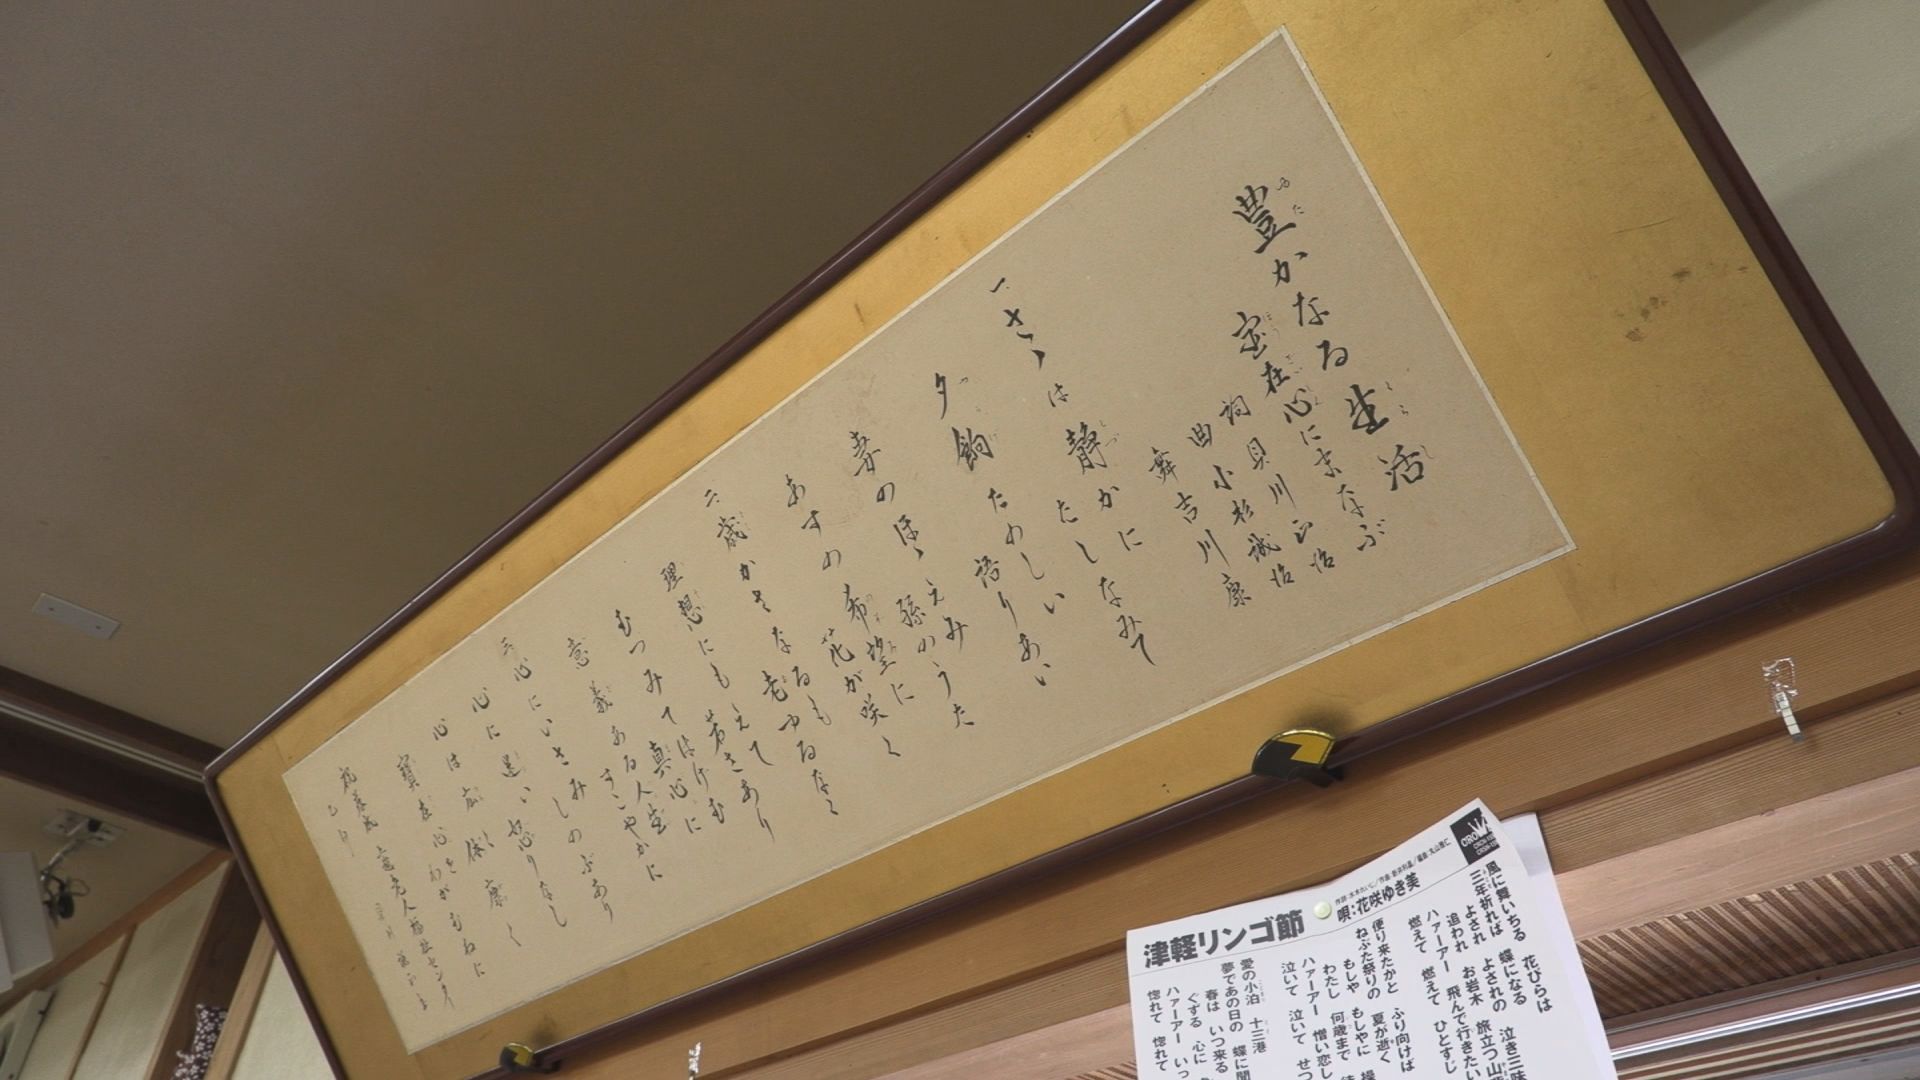 豊かなる生活
宝在心にまなぶ
詞 貝川正治
曲 小杉誠治
舞 吉川康
一、さゝは静かに たしなみて
夕餉たのしい 語りあい
妻のほゝえみ 孫のうた
あすの希望に 花が咲く
二、歳かさなるも 老ゆるなく
理想にもえて 若さあり
むつみてはげむ 真心に
意義ある人生 すこやかに
三、心にいさみ しのぶあり
心に迷い 怒りなし
心は広く 体康く
寶在心を わがむねに
老人福祉センター
津軽リンゴ節
唄:花咲ゆき美
風に舞いちる 花びらは
三年祈れば 蝶になる
よされ よされの
追われ お岩木 旅立つ
ハァーアー 飛んで行きたい
燃えて 燃えて ひとすじ
便り来たかと ふり向けば
ねぷた祭りの 夏が逝く
もしや もしやに
わたし 何歳まで
ハァーアー 憎い恋し
泣いて 泣いて せつ
愛の小泊 十三港
夢であの日の 蝶に聞
春は いつ来る
ぐずる 心に
ハァーアー いっ
惚れて 惚れて